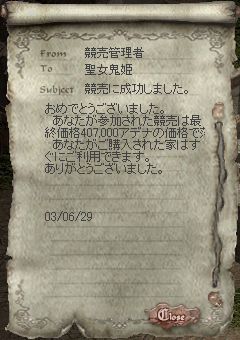 From 競売管理者
To 聖女鬼姫
Subject 競売に成功しました。
おめでとうございました。
あなたが参加された競売は最
終価格407,000アデナの価格で
あなたがご購入された家はす
ぐにご利用できます。
ありがとうございました。
03/06/29
Close